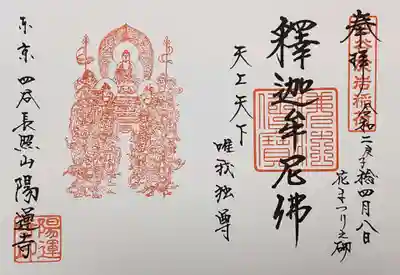 奉拝
令和二庚子拾四月八日
花まつり之砌
釋迦牟尼佛
天上天下
唯我独尊
东京四谷長照山陽運寺
陽運